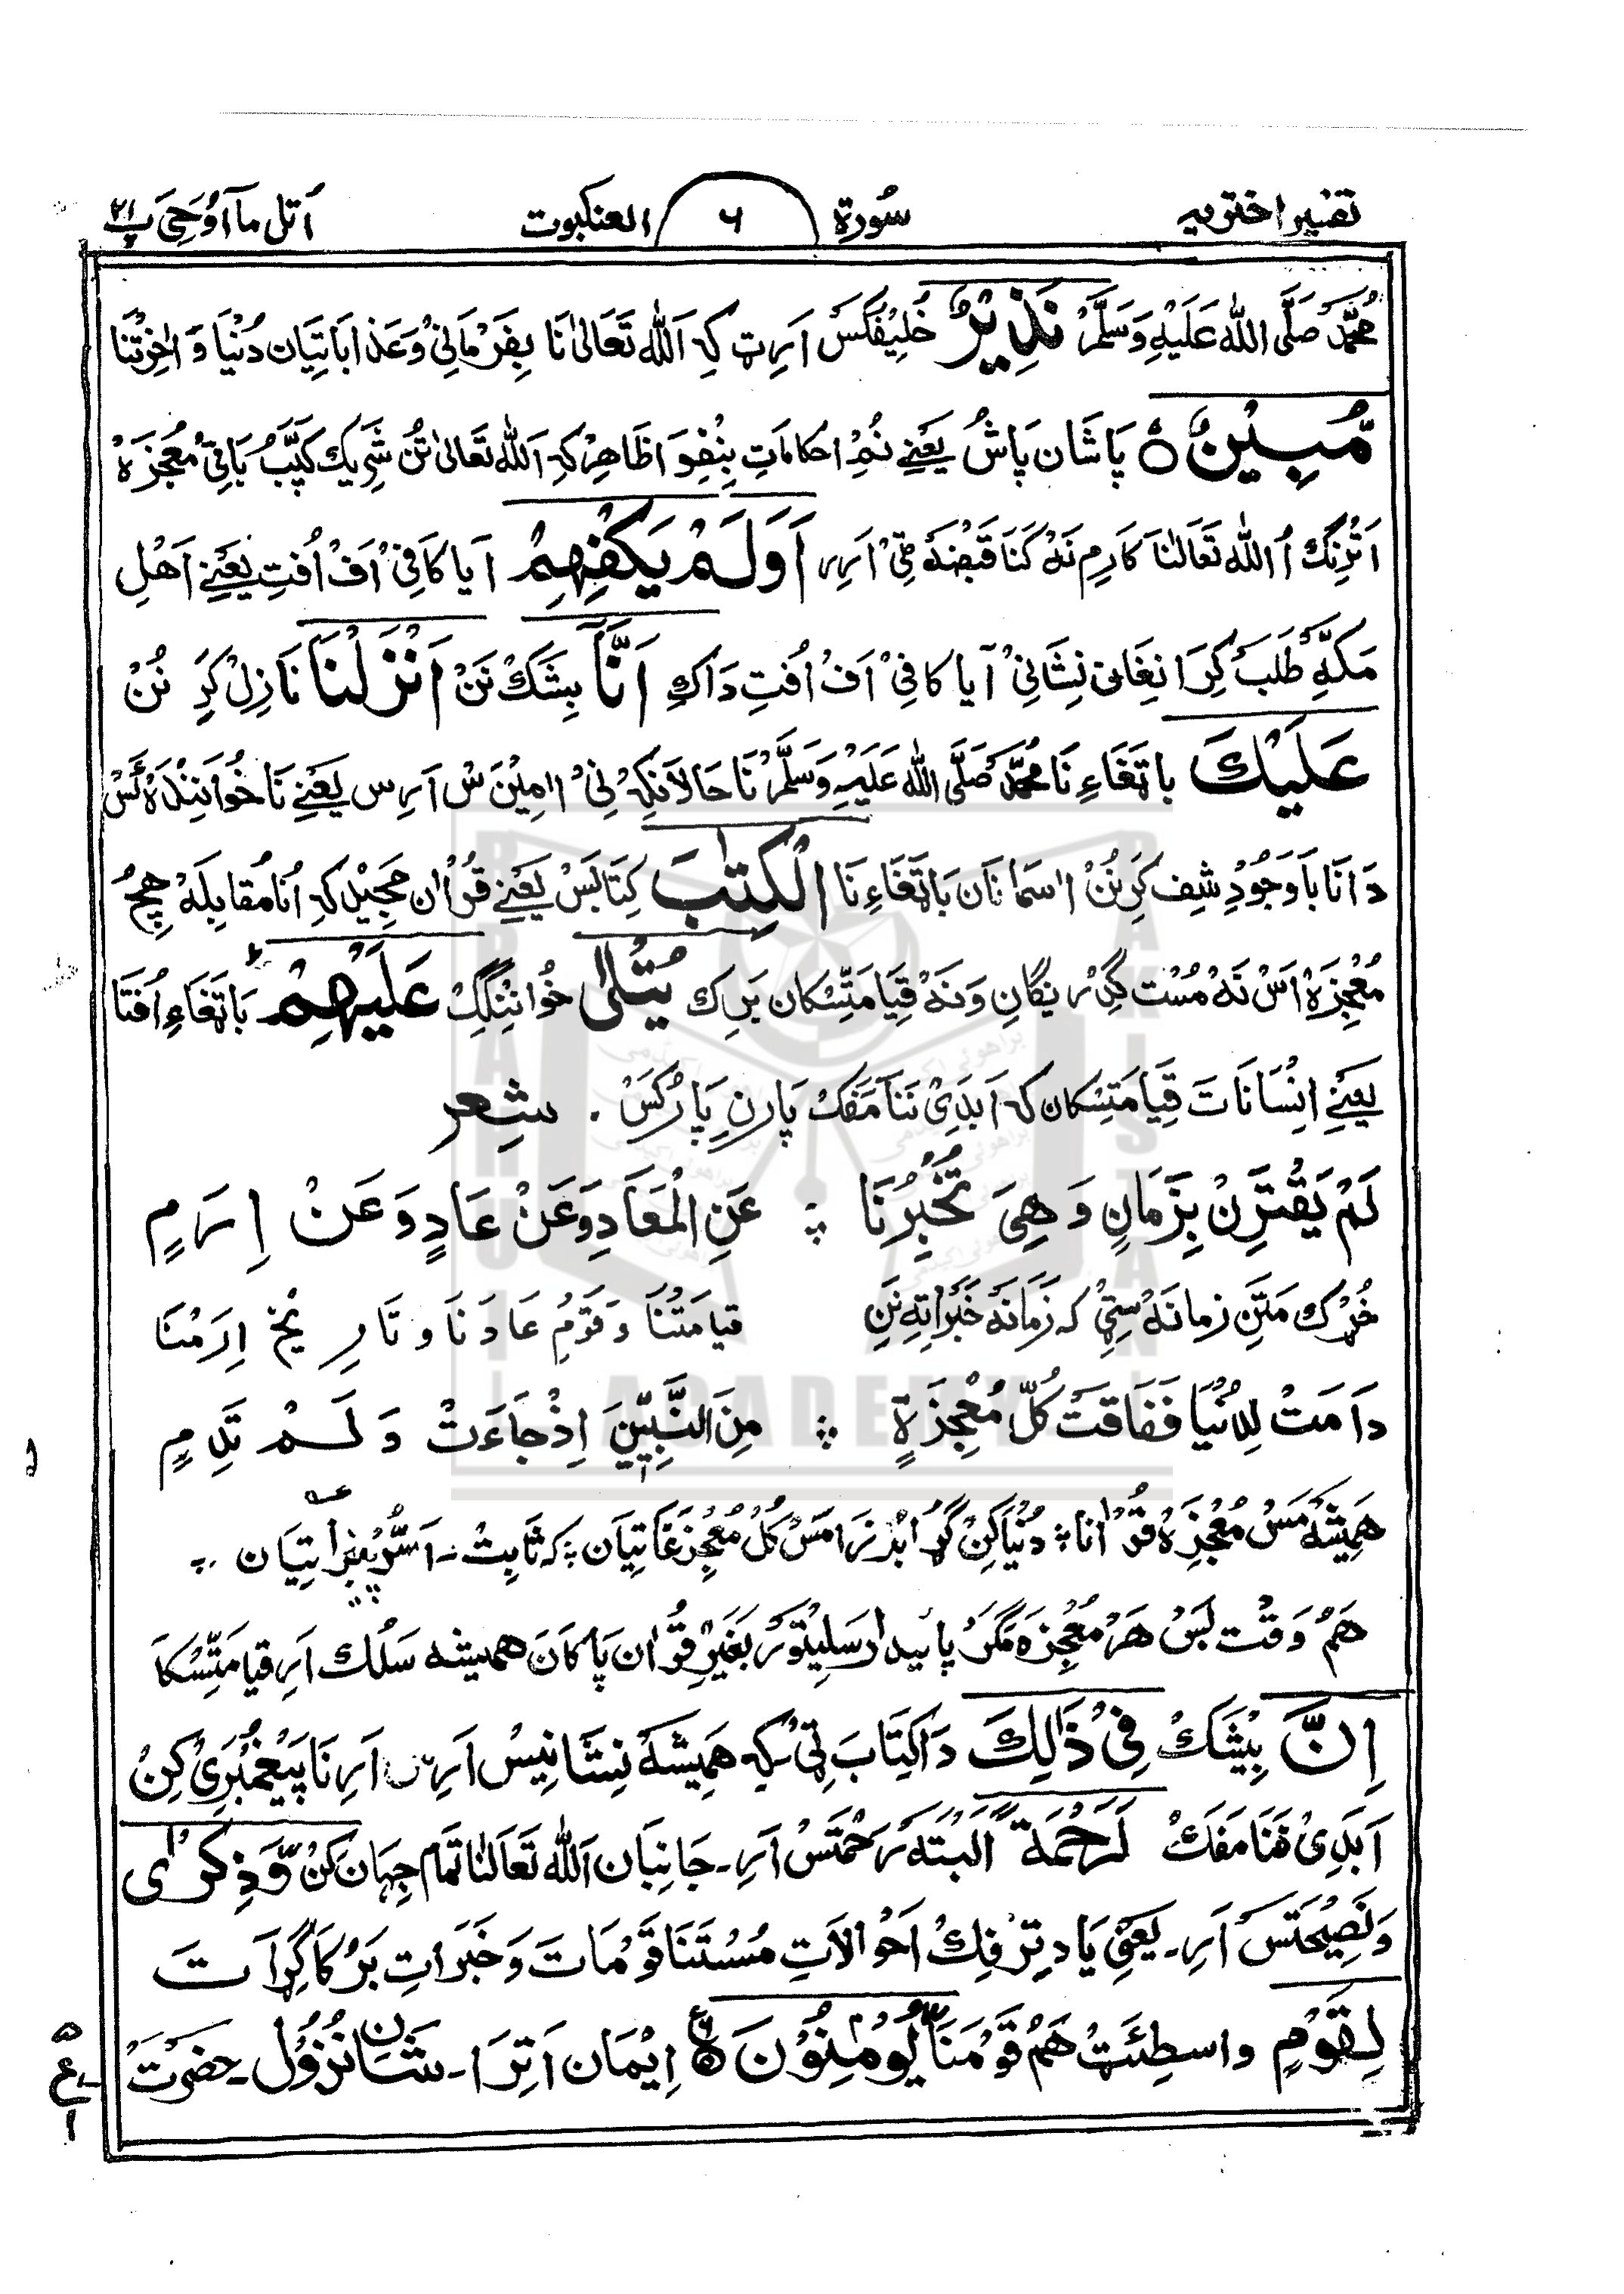 تفسیر اختریه سُورة ٦ العنکبوت اُتل مآ اُوحِیَ پ ٢١
مُحَمَّد صَلَّی اللهُ عَلَیْهِ وَسَلَّمَ نَذِیْرٌ خُلِیْفُکَسْ اَرِتْ کِه اَللهُ تَعَالیٰ نَا بِفَرْمَانِیْ وَعَذَابَاتِیَان دُنْیَا وَ اٰخِرْتْنَا
مُّبِیْنٌ ○ پَاشَان پَاشُ یَعْنِے نُمِ احکاماتِ بِنْفِوَ اظَاهِرْ کِه اَللهُ تَعَالیٰ تُنْ شَرِیك کَپَّبُ بَاقِیْ مُعْجِزَهْ
اَتْرِنْگ اُ اللهُ تَعَالیٰنَا کَارِم نَهْ کَنَا قَبْضَهٔ ٹِیْ اَرِر اَوَلَمْ یَکْفِهِمْ آیا کَافِیْ اَفْ اُفتِ یَعْنِے اَهْلِ
مَکَّهِ طَلَبْ کِرَا نِغَان نِشَانِیْ آیا کَافِیْ اَفْ اُفتِ دَاکِ اَنَّآ بِشَكْ نَنْ اَنْزَلْنَا نَازِلْ کَرِ نُنْ
عَلَیْكَ باتَغَاءِ نَا مُحَمَّد صَلَّی اللهُ عَلَیْهِ وَسَلَّمَ نَا حَالاَنکِه نِیْ اُمِیْنَسْ اَرِس یَعْنِے نَا خُوَانِنْدَهْ ئَسْ
دَانَا بَاوَجُودِ شِف کَرِنُنْ اٰسمانَان بَاتَغَاءِ نَا الْکِتٰبَ کِتَابَسْ یَعْنِے قُرْاٰن مَجِیْد کِه اُنَا مُقَابِلَهْ هِچُ
مُعْجِزَهْ اَسْ نَهْ مُسْت گِدْرینگَانِ وَنَهْ قِیَامَتِسْکَان بَرِك یُتْلیٰ خُوَانِنْگِكْ عَلَیْهِمْ بَاتَغَاءِ اُفتَا
یَعْنِے اِنْسَانَاتَ قِیَامَتِسْکَان کِه اَبَدِیْ نَنَا مَفَكْ پَارِنِ پَارْکَسْ ۔ شِعر
لَمْ یَقْتَرِنْ بِزَمَانٍ وَهِیَ تُخْبِرُنَا ؞ عَنِ الْمَعَادِ وَعَنْ عَادٍ وَعَنْ اِرَمٍ
خُڑك مَتَنِ زمانَهْ سِتِیْ کہ زَمَانَهْ خَبَرَاتِهِ نَنِ قیامَتْنَا وَقَوْمِ عَادَ نَا و تَارِیْخِ اِرَمْنَا
دَامَتْ لِلدُنْیَا فَفَاقَتْ کُلَّ مُعْجِزَةٍ ؞ مِنَ النَّبِیِّیْنَ اِذْجَاءَتْ وَلَمْ تَدِمٍ
هَمِیْشَهْ مَسْ مُعْجِزَهْ قُرْاٰنا ؞ دُنْیَاکِنْ
هَمْ وَقْت بَسْ هَرْ مُعْجِزَهْ مَگَرْ پائیدار سَلِیْتَوْر بَغَیْرِ قُرْاٰن پَاکَان همیشه سَلْك اَرِ قیامَتِسْکَا
اِنَّ بِیْشَكْ فِیْ ذٰلِكَ دَا کِتَابَ تِیْ کِه هَمِیْشَهْ نِشَانِیسْ اَرِ اَرِ نَا پَیْغَمْبَرِیْ کِنْ
اَبَدِیْ فَنَا مَفَكْ لَرَحْمَةً البته رَحْمَتَسْ اَرِ۔ جَانِبَان اَللهُ تَعَالیٰنَا تَمَام جِهَان کِنْ وَّذِکْرٰی
وَنَصِیْحَتَسْ اَرِ۔ یَعْنِیْ یَادتِرْفِكْ اَحْوَالَاتِ مُسْتَنَا قَوْمَاتَ وَخَبَرَاتِ بَرُکَا گِرَاتَ
لِقَوْمٍ واسطِئَتْ هَمْ قَوْمَنَا یُّوْمِنُوْنَ ○ اِیْمَان اَتِرَا۔ شَانِ نُزُوْل۔ حضرت
ع